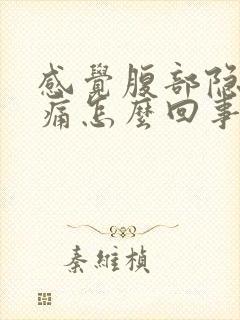 感覺腹部隐
痛怎麽回事
秦維楨